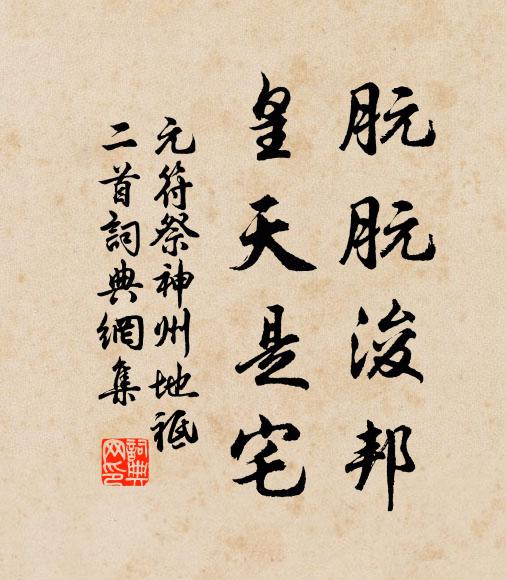 朊朊浚邦
皇天是宅
元符祭神州地祇
二首詞典網集
詞典
网印